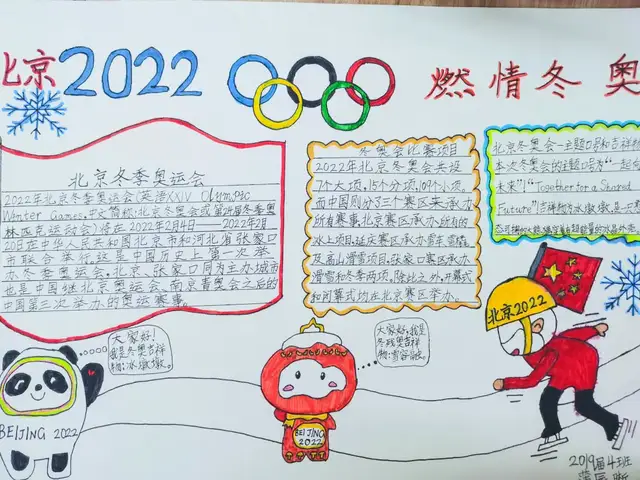 北京2022
燃情冬奥
北京冬季奥运会
2022年北京冬季奥运会(英语XXIV Olympic
Winter Games,中文简称:北京冬奥会或第24届冬季奥
林匹克运动会)将在2022年2月4日——2022年2月
20日在中华人民共和国北京市和河北省张家口
市联合举行。这是中国历史上第一次举
办冬季奥运会,北京、张家口同为主办城市
也是中国继北京奥运会、南京青奥会之后的
中国第三次举办的奥运赛事。
冬奥会比赛项目
2022年北京冬奥会共设
7个大项,15个分项,109个小项。
而中国则分了三个赛区来承办
所有赛事,北京赛区承办所有的
冰上项目,延庆赛区承办雪车雪橇
及高山滑雪项目,张家口赛区承办
滑雪和冬季两项。除此之外,开幕式
和闭幕式均在北京赛区举办。
北京冬奥会—主题口号和吉祥物
本次冬奥会的主题口号为"一起向
未来"("Together for a Shared
Future")吉祥物为冰墩墩,
大家好,
我是冬奥吉祥
物:冰墩墩.
大家好,我是
冬残奥吉祥
物:雪容融.
BEIJING 2022
BEIJING
2022
北京2022
2019届4班